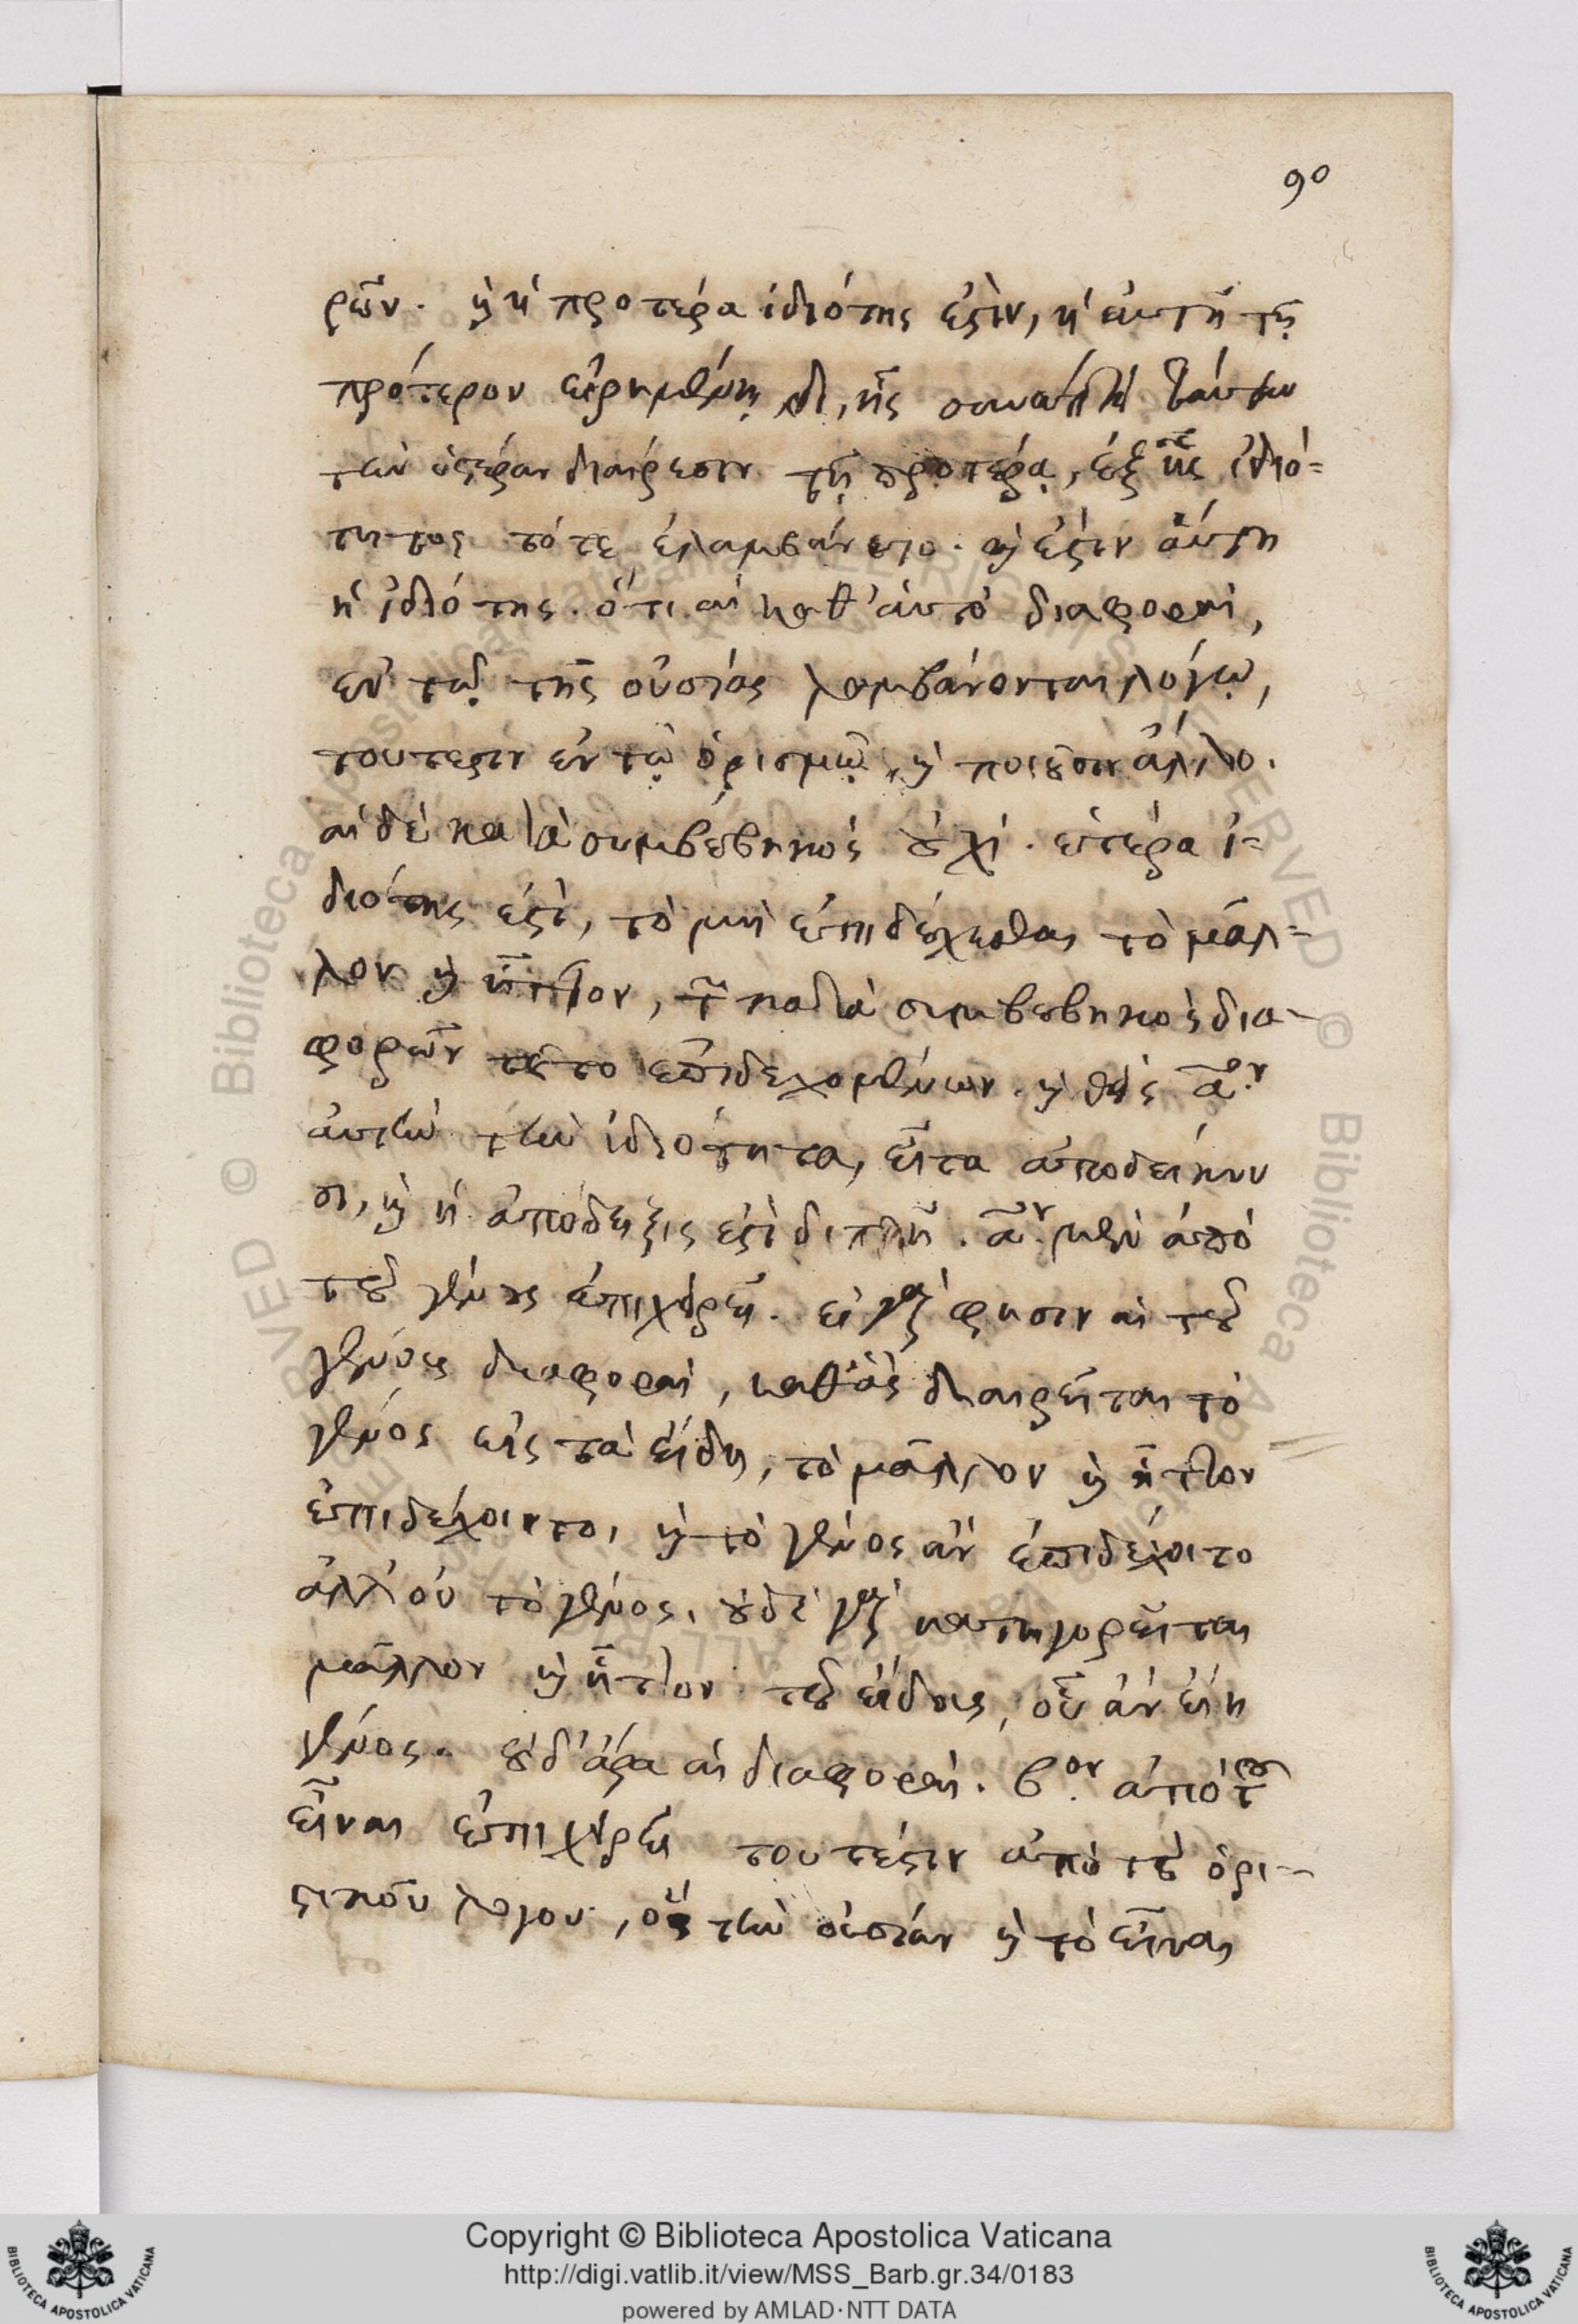 90
ρῶν. καὶ ἡ προτέρα ἰδιότης ἐστὶν, ἡ ἐν τῇ
πρότερον εἰρημένῃ, δι' ἧς συνάπτει ταύτην
τὴν ὑστέραν διαίρεσιν τῇ προτέρᾳ, ἐξ ἧς ἰδιό=
τητος τότε ἐλαμβάνετο. καὶ ἔστιν αὕτη
ἡ ἰδιότης. ὅτι αἱ καθ' αὑτὸ διαφοραὶ,
ἐν τῷ τῆς οὐσίας λαμβάνονται λόγῳ,
τουτέστιν ἐν τῷ ὁρισμῷ, καὶ ποιοῦσιν ἄλλο.
αἱ δὲ κατὰ συμβεβηκὸς οὐχί. ἑτέρα ἰ=
διότης ἐστὶ, τὸ μὴ ἐπιδέχεσθαι τὸ μᾶλ=
λον καὶ ἧττον, τῶν κατὰ συμβεβηκὸς δια-
φορῶν τοῦτο ἐπιδεχομένων. καὶ θεὶς αον
αὐτὴν τὴν ἰδιότητα, εἶτα ἀποδείκνυ
σι, καὶ ἡ ἀπόδειξις ἐστὶ διπλῆ. αον μὲν ἀπὸ
τοῦ γένους ἐπιχειρεῖ. εἰ γὰρ φησιν αἱ τοῦ
γένους διαφοραὶ, καθ' ἃς διαιρεῖται τὸ
γένος εἰς τὰ εἴδη, τὸ μᾶλλον καὶ ἧττον
ἐπιδέχοιντο, καὶ τὸ γένος ἂν ἐπιδέχοιτο
ἀλλ' οὐ τὸ γένος, οὐδὲ γὰρ κατηγορεῖται
μᾶλλον καὶ ἧττον τοῦ εἴδους, οὗ ἂν εἴη
γένος. οὐδ' ἄρα αἱ διαφοραί. βον. ἀπὸ τοῦ
εἶναι ἐπιχειρεῖ τουτέστιν ἀπὸ τοῦ ὁρι-
στικοῦ λόγου, ὃς τὴν οὐσίαν καὶ τὸ εἶναι
Copyright © Biblioteca Apostolica Vaticana
http://digi.vatlib.it/view/MSS_Barb.gr.34/0183
powered by AMLAD·NTT DATA